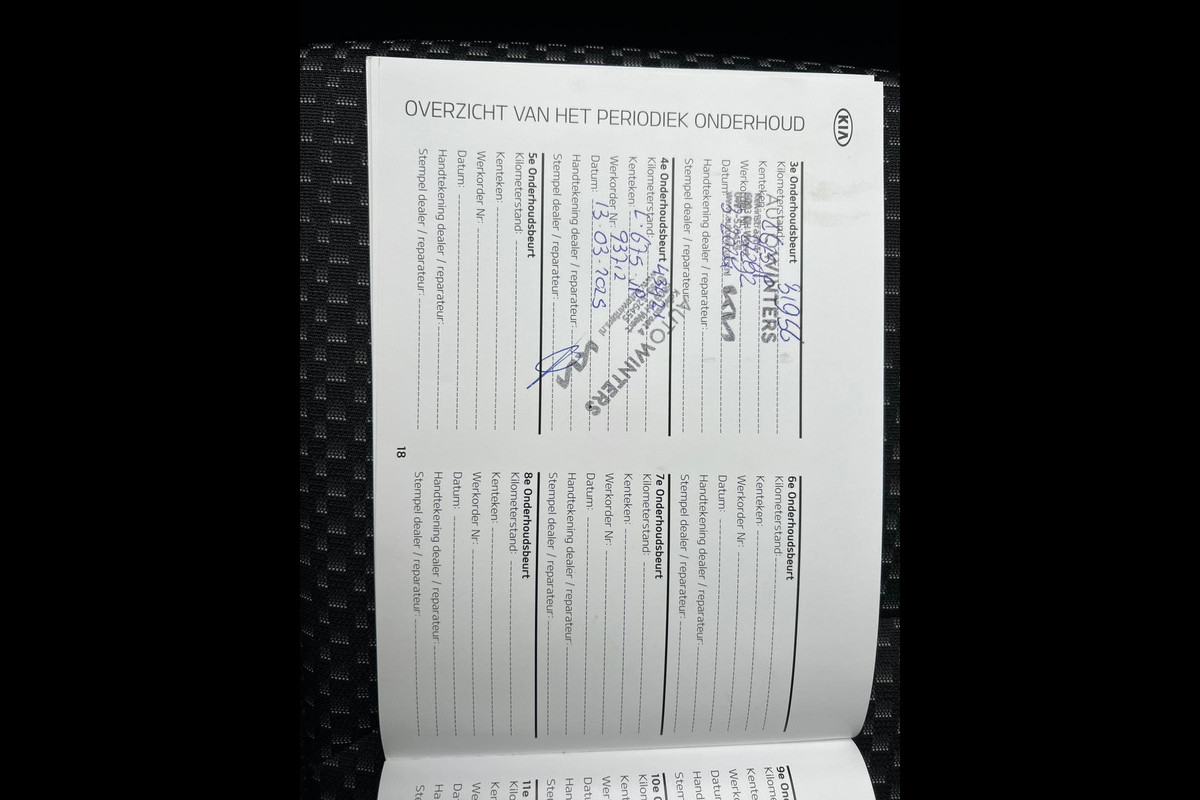 KIA
OVERZICHT VAN HET PERIODIEK ONDERHOUD
3e Onderhoudsbeurt
Kilometerstand: 31956
Kenteken:
Werkorder
Datum:
Handtekening dealer / reparateur:
Stempel dealer / reparateur:
AUTO WINTERS
KIA
4e Onderhoudsbeurt
Kilometerstand:
Kenteken:
Werkorder Nr: 93712
Datum: 13-03-2025
Handtekening dealer / reparateur:
Stempel dealer / reparateur:
AUTO WINTERS
KIA
5e Onderhoudsbeurt
Kilometerstand:
Kenteken:
Werkorder Nr:
Datum:
Handtekening dealer / reparateur:
Stempel dealer / reparateur:
6e Onderhoudsbeurt
Kilometerstand:
Kenteken:
Werkorder Nr:
Datum:
Handtekening dealer / reparateur:
Stempel dealer / reparateur:
7e Onderhoudsbeurt
Kilometerstand:
Kenteken:
Werkorder Nr:
Datum:
Handtekening dealer / reparateur:
Stempel dealer / reparateur:
8e Onderhoudsbeurt
Kilometerstand:
Kenteken:
Werkorder Nr:
Datum:
Handtekening dealer / reparateur:
Stempel dealer / reparateur:
18
9e On
Kilome
Kente
Werk
Datur
Hand
Stem
10e O
Kilon
Kent
Wer
Dat
Han
Ste
11e
Kilo
Ken
We
Da
Ha
St